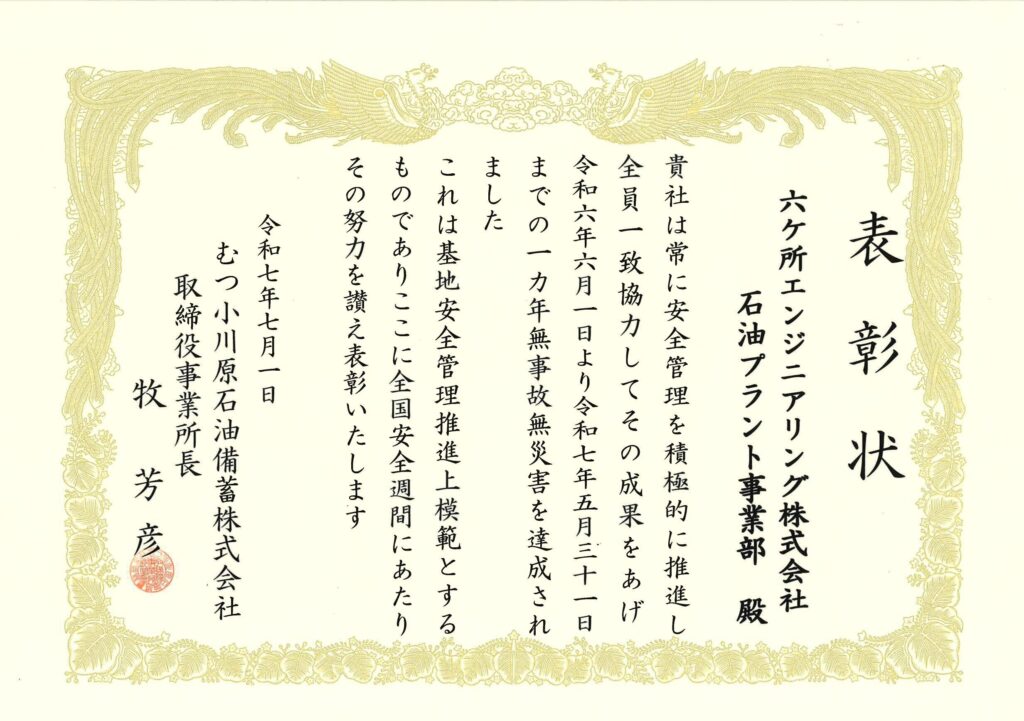 表彰状
六ケ所エンジニアリング株式会社
石油プラント事業部 殿
貴社は常に安全管理を積極的に推進し
全員一致協力してその成果をあげ
令和六年六月一日より令和七年五月三十一日
までの一カ年無事故無災害を達成され
ました
これは基地安全管理推進上模範とする
ものでありここに全国安全週間にあたり
その努力を讃え表彰いたします
令和七年七月一日
むつ小川原石油備蓄株式会社
取締役事業所長
牧芳彦